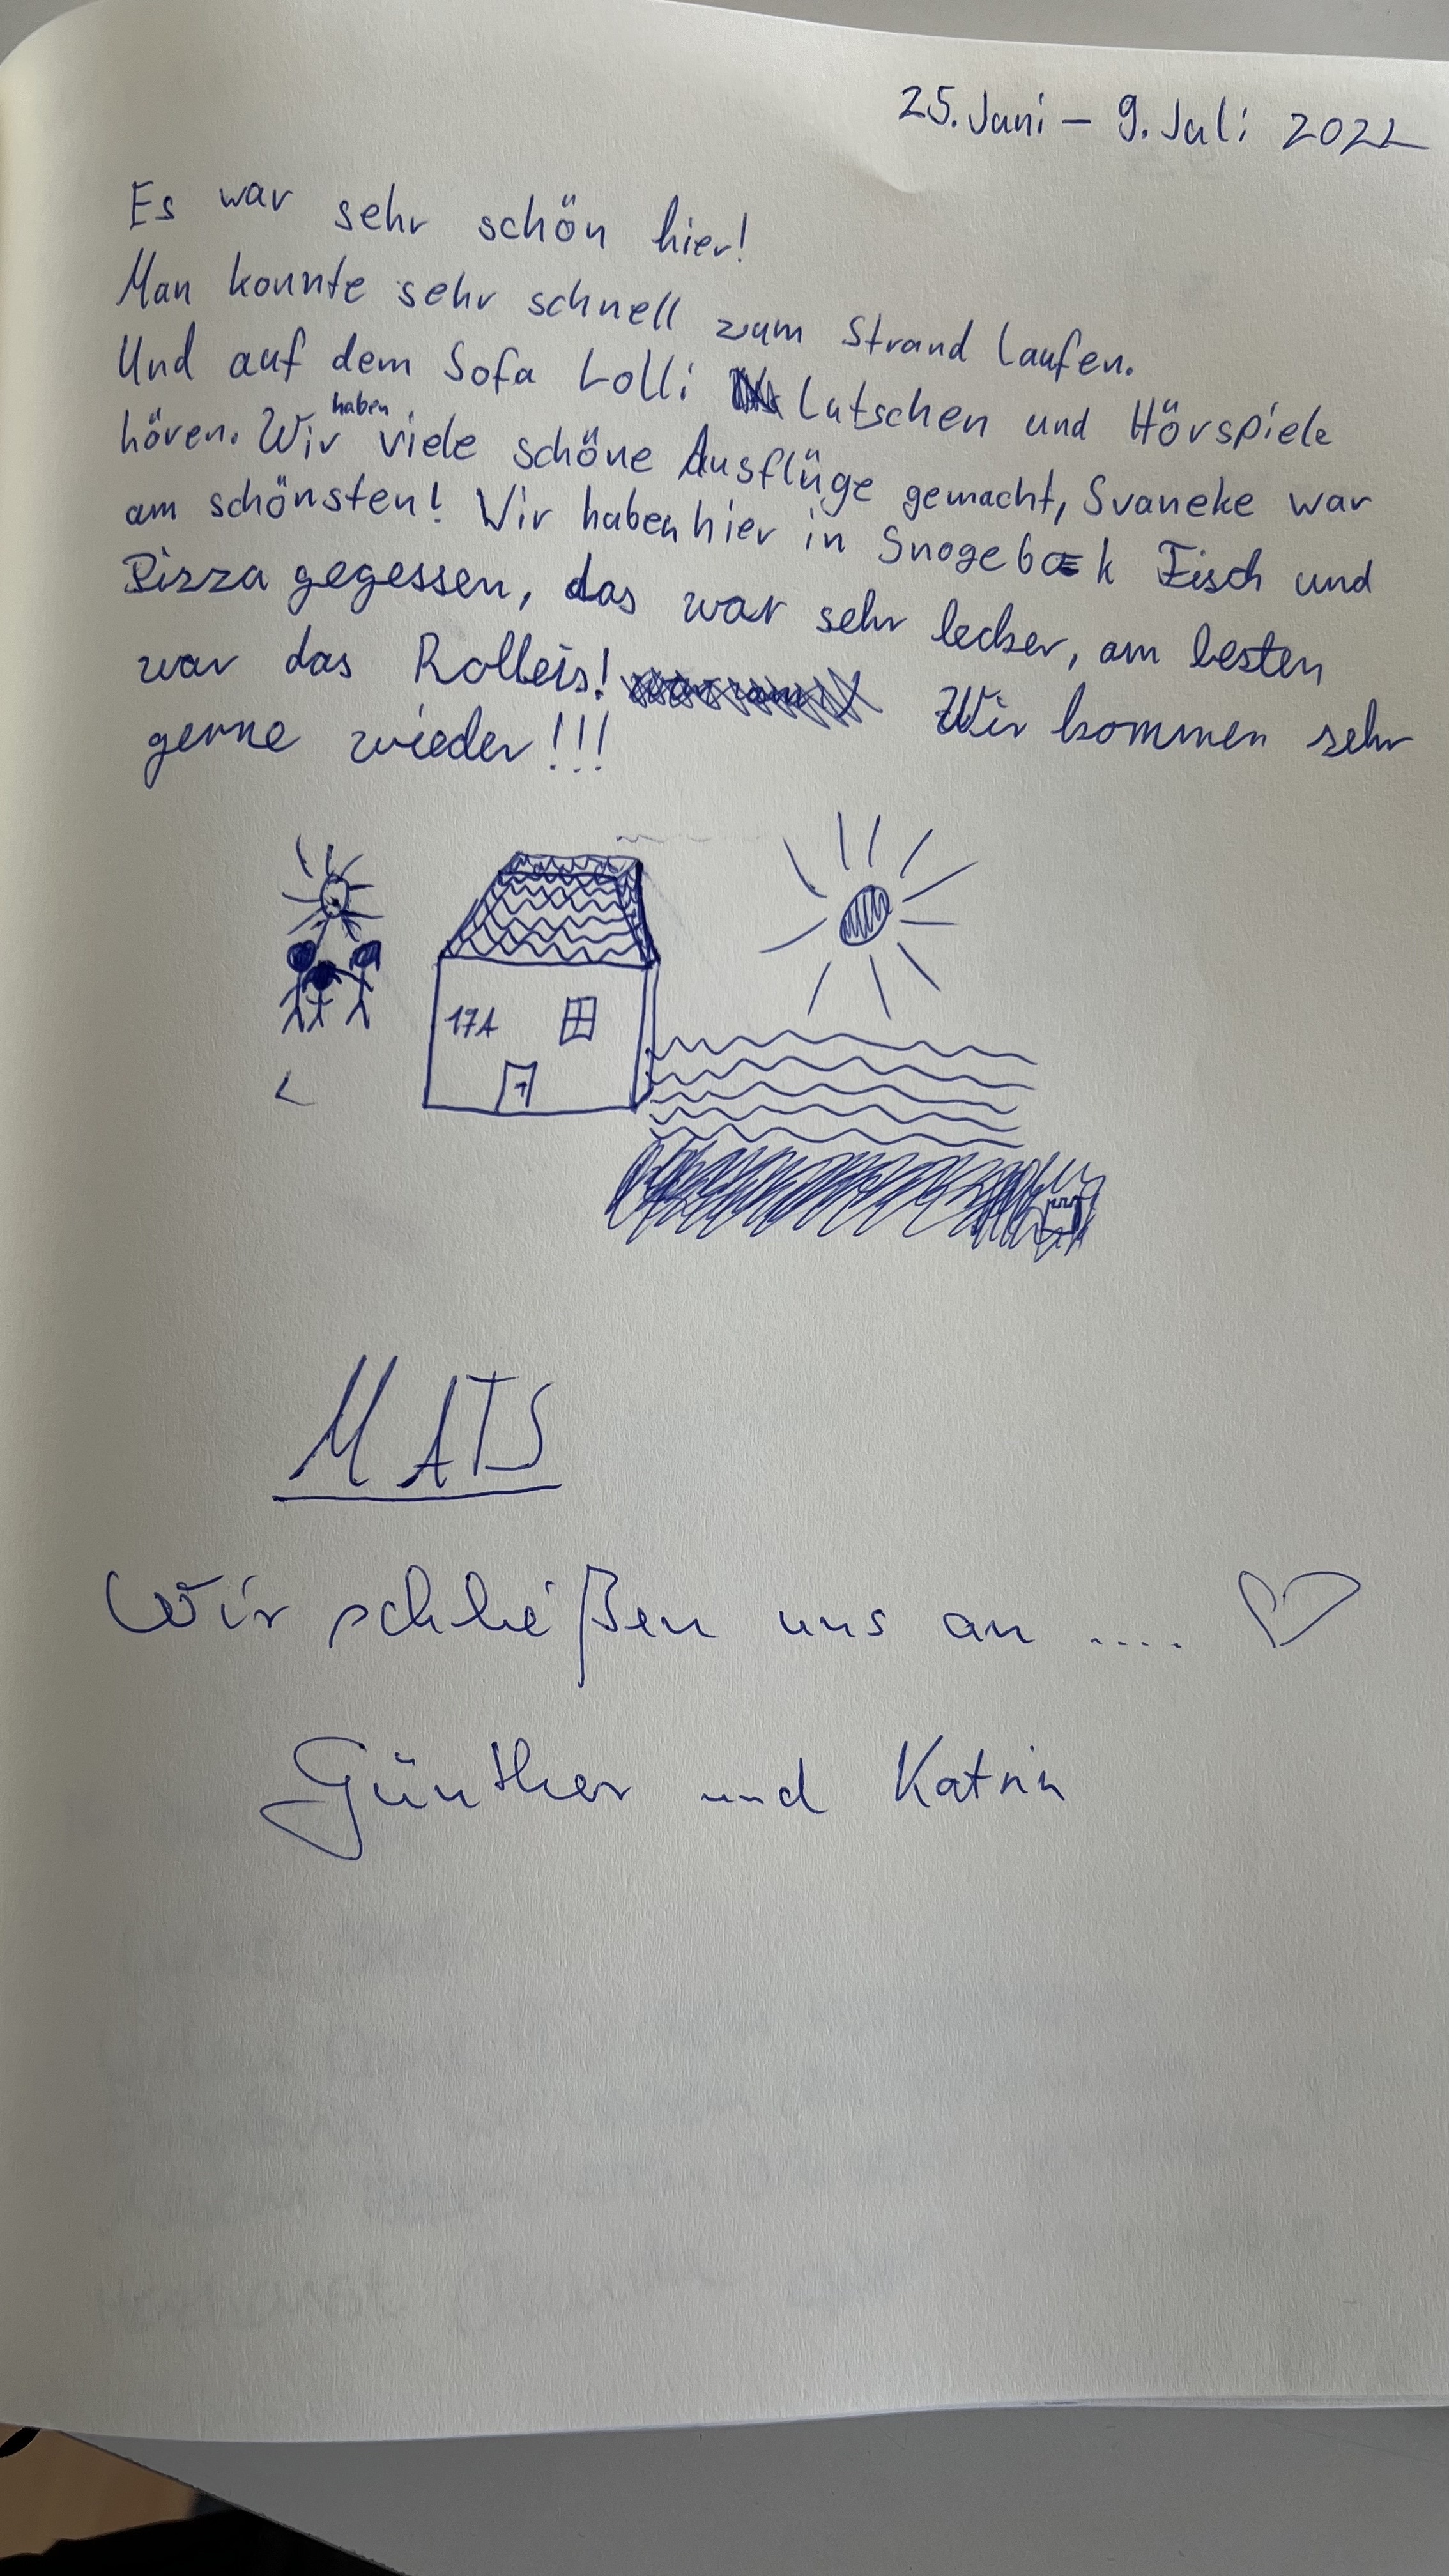 25. Juni – 9. Juli 2022
Es war sehr schön hier!
Man konnte sehr schnell zum Strand laufen.
Und auf dem Sofa Lolli Lutschen und Hörspiele
hören. Wir haben viele schöne Ausflüge gemacht, Svaneke war
am schönsten! Wir haben hier in Snogebæk Fisch und
Pizza gegessen, das war sehr lecker, am besten
war das Rolleis! Wir kommen sehr
gerne wieder!!!
17A
MATS
Wir schließen uns an .... ♡
Günther und Katrin